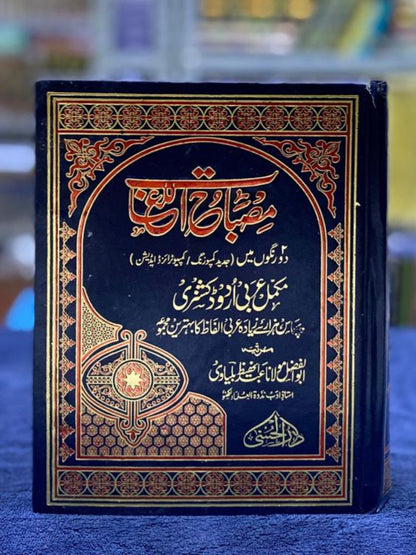 مصباح اللغات
دو رنگوں میں (جدید کمپوزنگ / کمپیوٹرائزڈ ایڈیشن)
مکمل عربی اردو ڈکشنری
پچاس ہزار سے زیادہ عربی الفاظ کا بہترین مجموعہ
مرتب
ابوالفضل مولانا عبدالحفیظ بلیاوی
استاذ ادب ندوۃ العلماء لکھنؤ
دار الحسنی